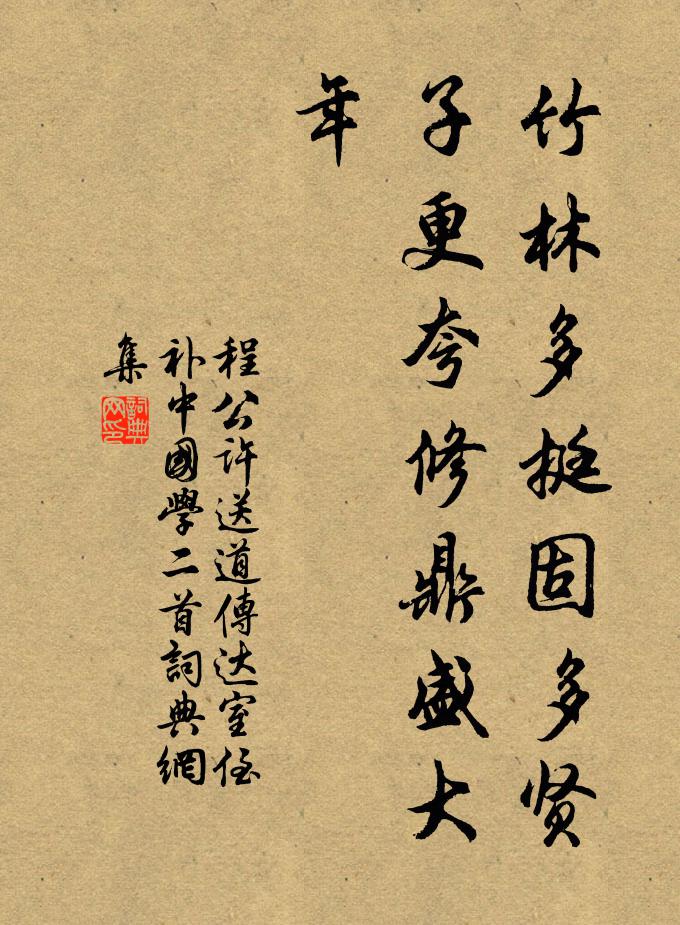 竹林多挺固多贤
子更夸修鼎盛大
年
程公许送道傳达室侄
补中國學二首詞典網
集
詞典网印